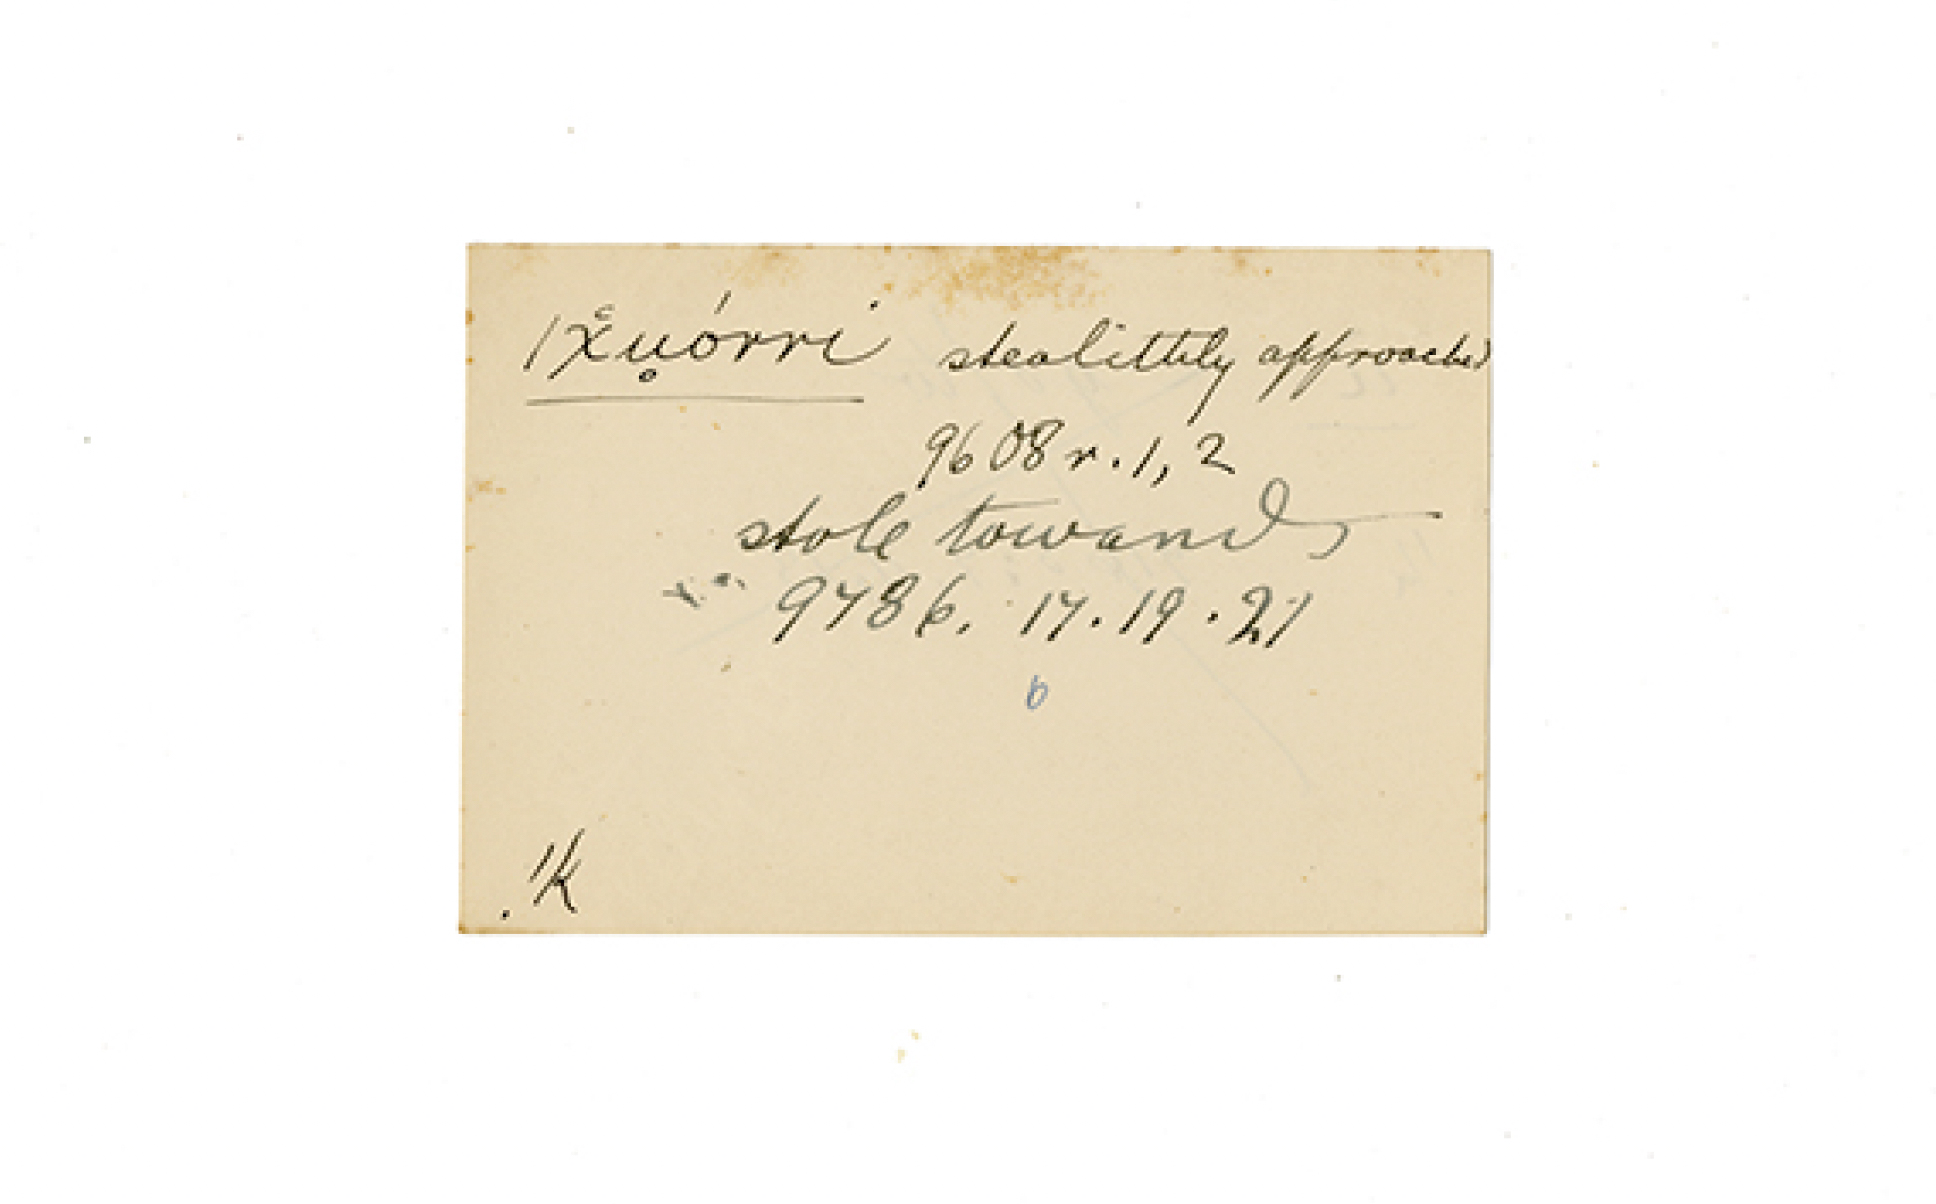 /x̆u̥órri stealithily approached
9608 r. 1, 2
stole towards
9786. 17. 19. 21
b
!k